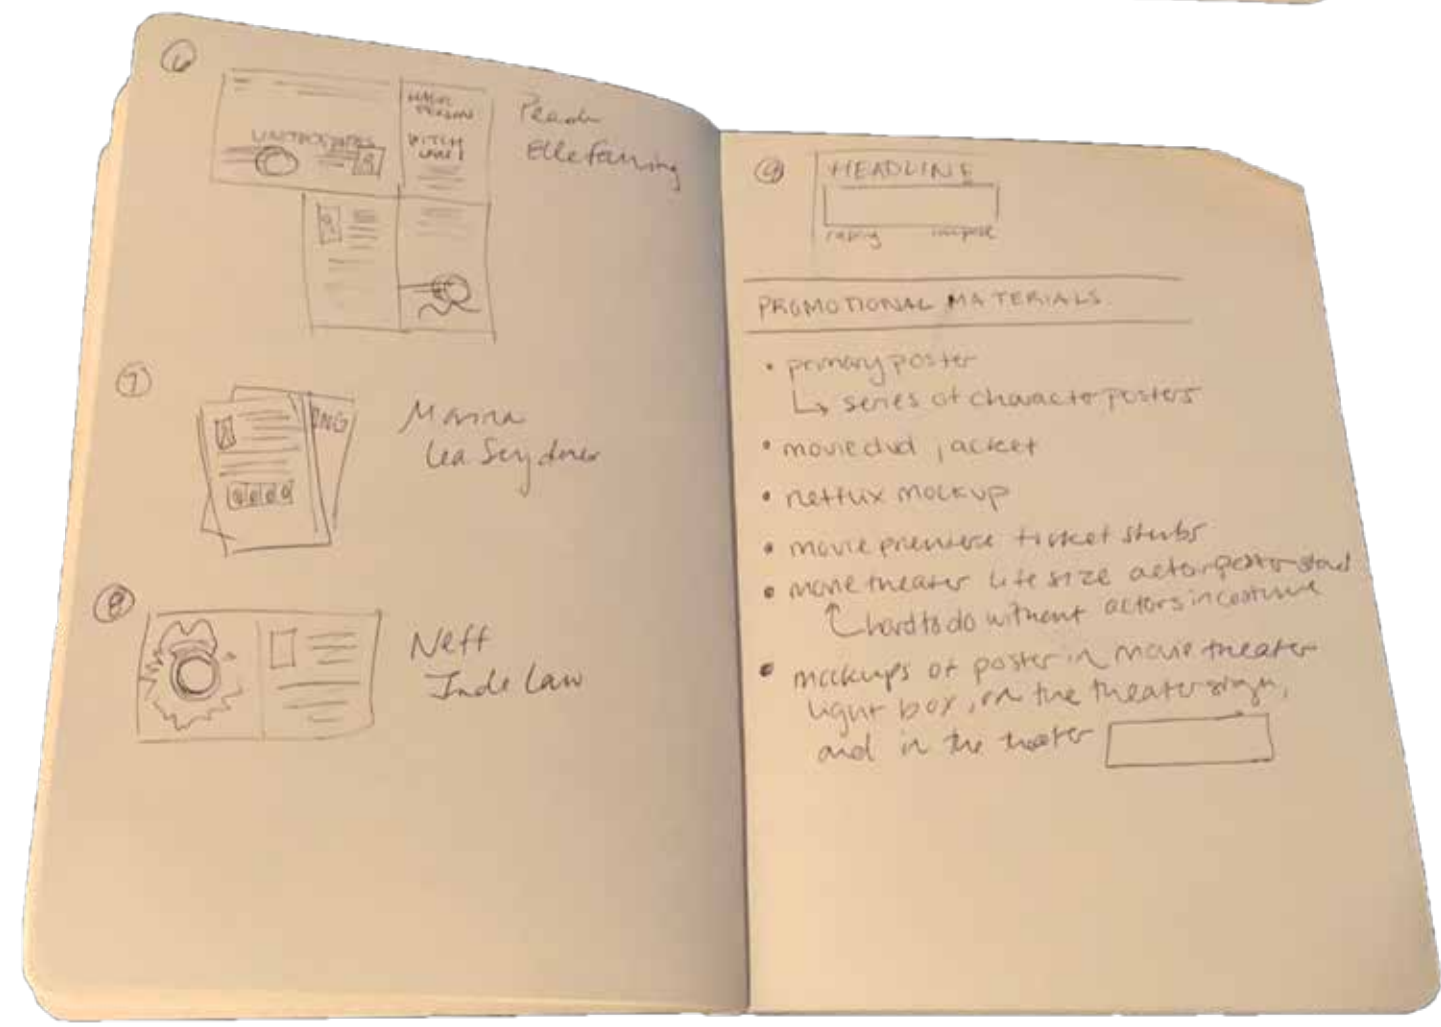 6
UNITED STATES
MAGIC
PERSON
WITCH
Peach
Elle Fanning
7
ING
Marina
Lea Seydoux
8
Neff
Jude Law
9
HEADLINE
PROMOTIONAL MATERIALS
• primary poster
↳ series of character posters
• movie dvd jacket
• netflix mockup
• movie premiere ticket stubs
• movie theater life size actor poster stand
hard to do without actors in costume
• mockups of poster in movie theater
light box, on the theater sign,
and in the theater